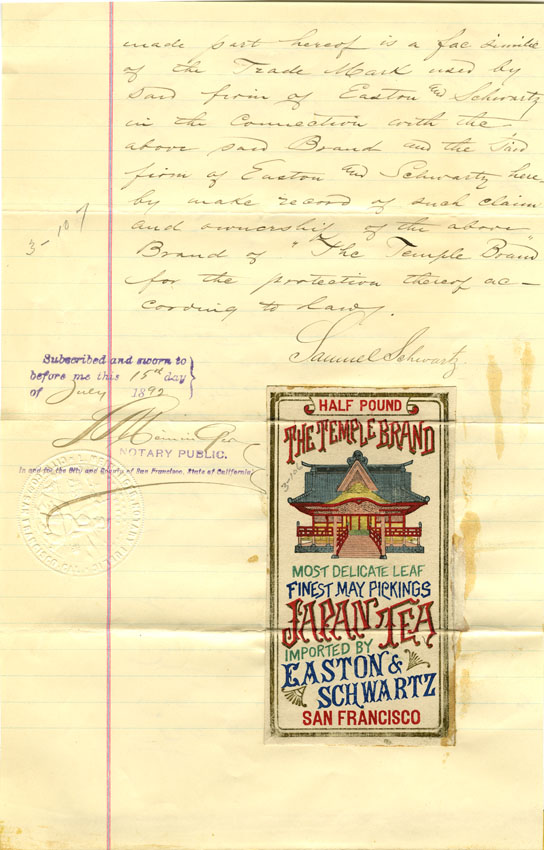 made part hereof is a fac simile
of the Trade Mark used by
said firm of Easton and Schwartz
in the Connection with the
above said Brand and the said
firm of Easton and Schwartz here-
by make record of such claim
and ownership of the above
Brand of "The Temple Brand"
for the protection thereof ac-
cording to Law,
Samuel Schwartz
107
3-
Subscribed and sworn to
before me this 15th day
of July 1892
NOTARY PUBLIC.
In and for the City and County of San Francisco, State of California
HALF POUND
THE TEMPLE BRAND
MOST DELICATE LEAF
FINEST MAY PICKINGS
JAPAN TEA
IMPORTED BY
EASTON &
SCHWARTZ
SAN FRANCISCO